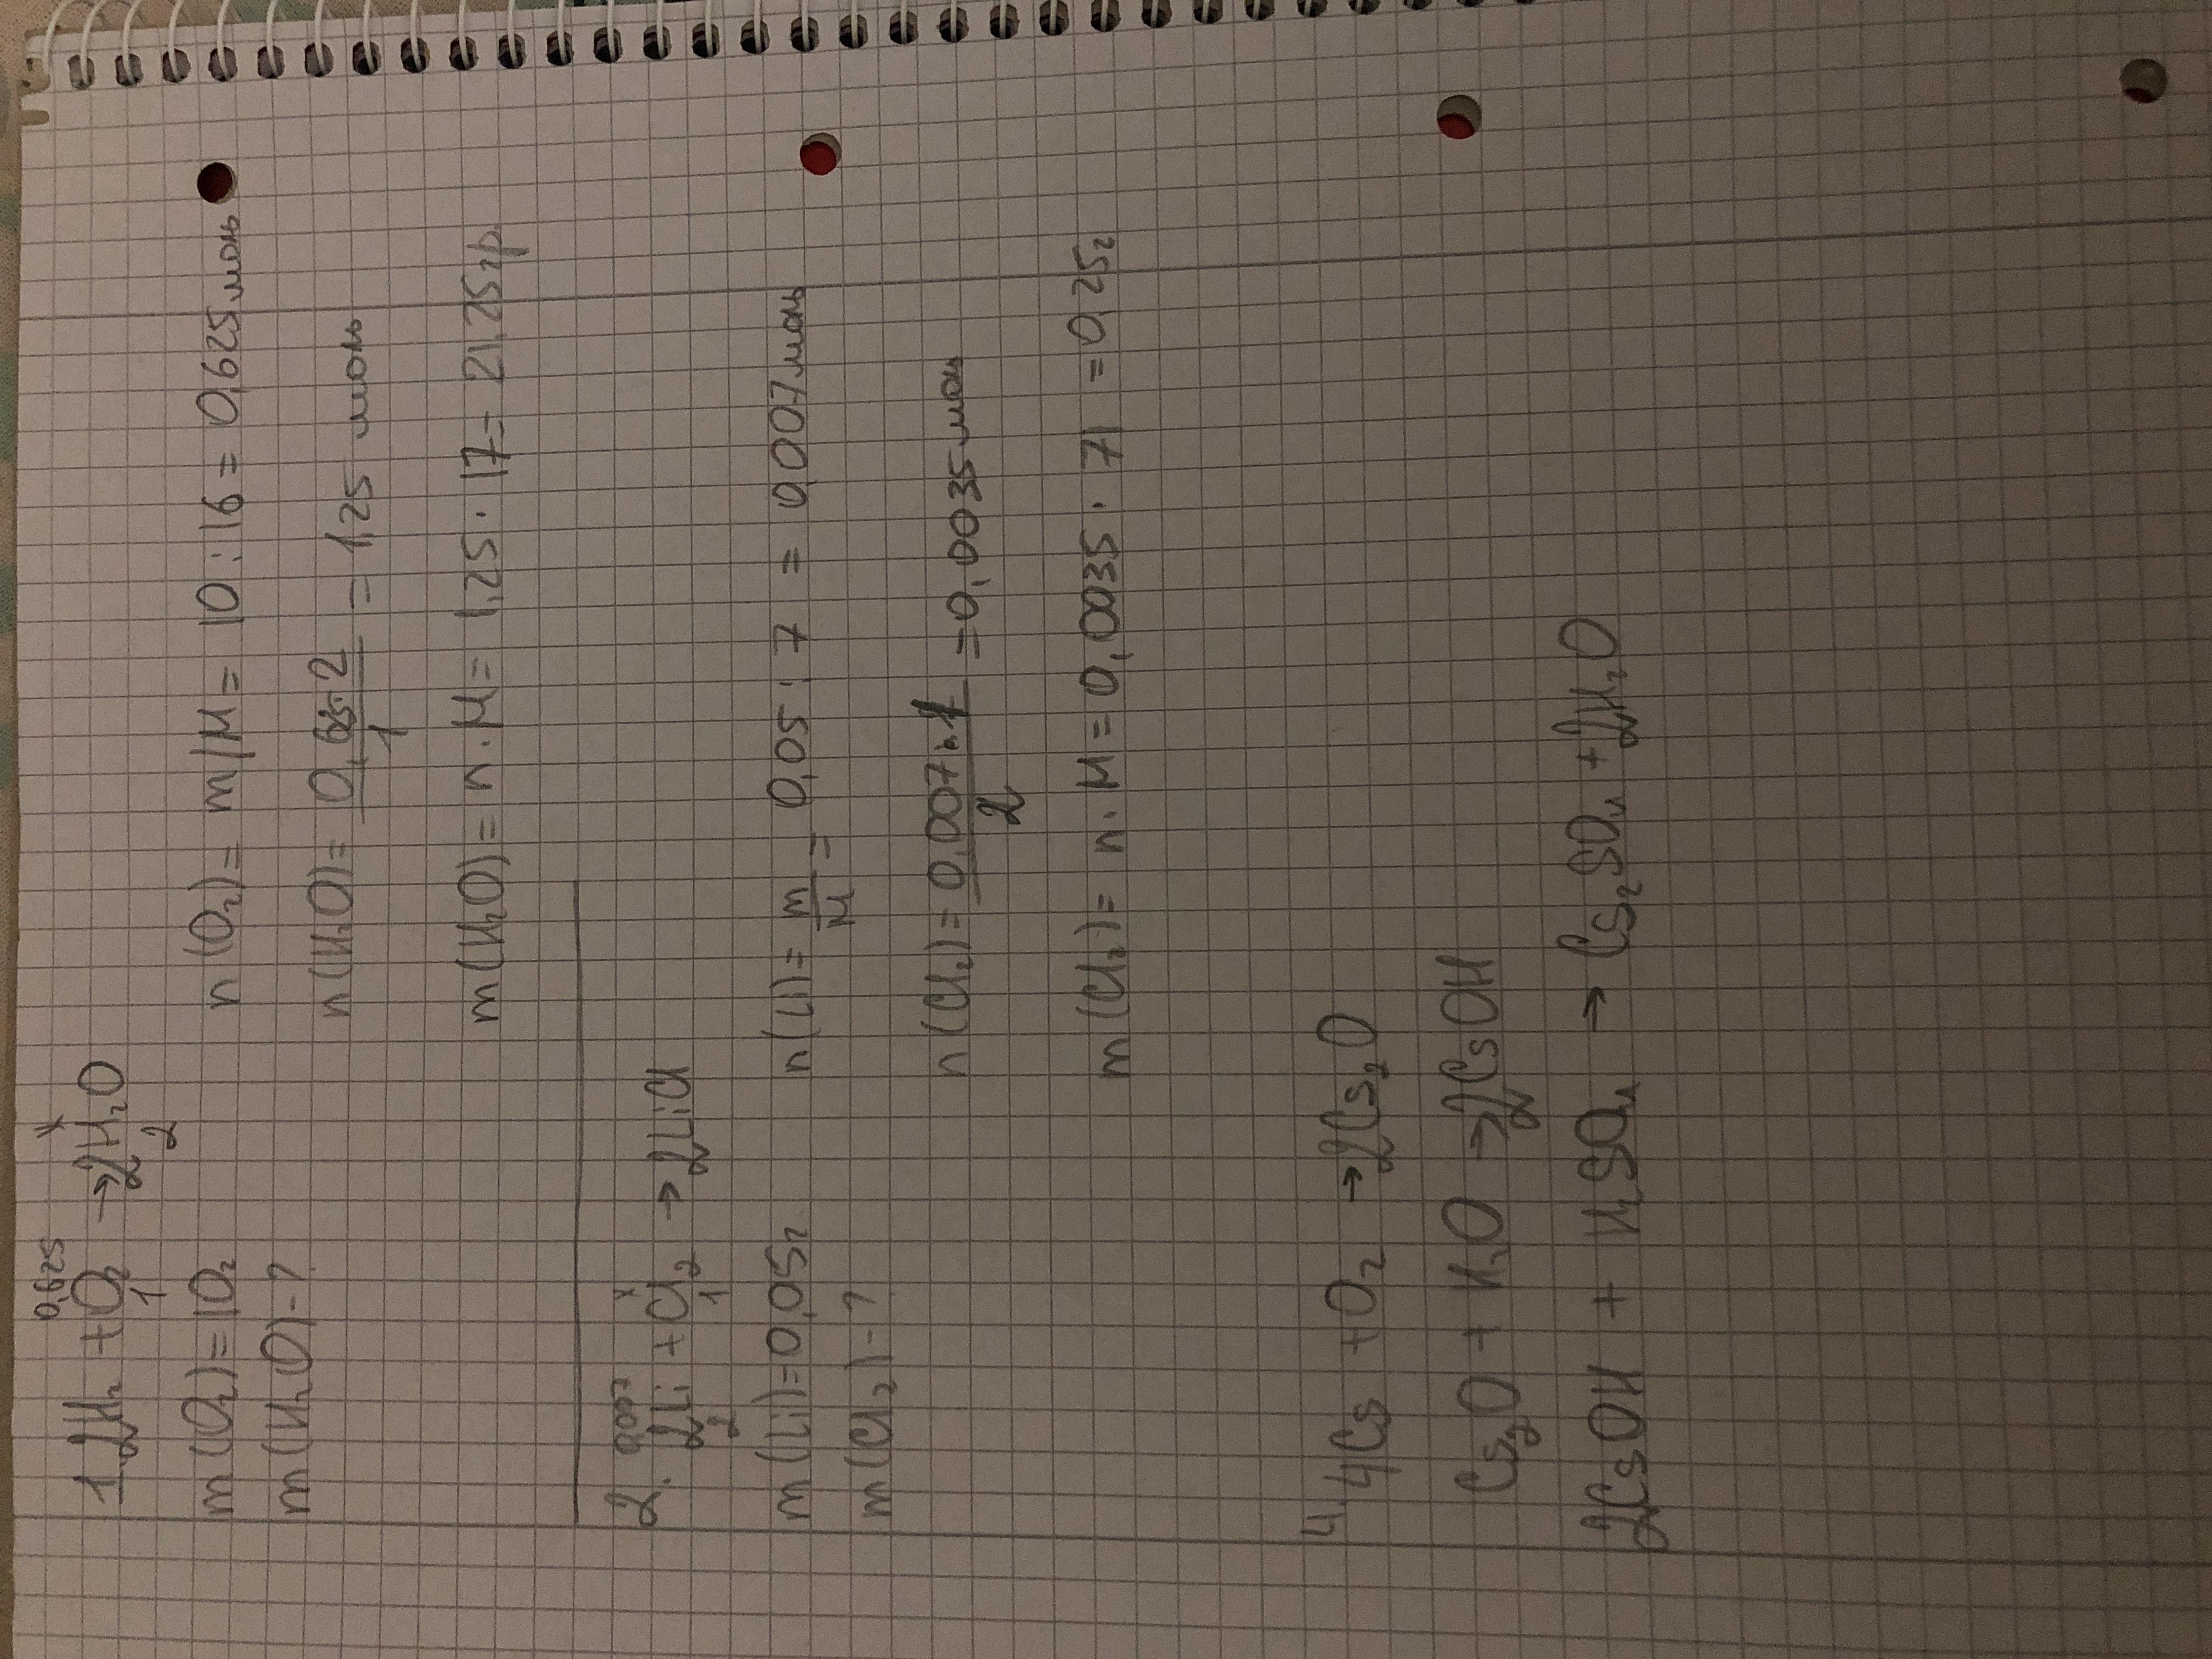 0,625 x
1. 2H₂ + O₂ → 2H₂O
1 2
m(O₂) = 10г
m(H₂O) - ?
n(O₂) = m/M = 10 : 16 = 0,625 моль
n(H₂O) = 0,625·2/1 = 1,25 моль
m(H₂O) = n · M = 1,25 · 17 = 21,25 гр
0,007 x
2. 2Li + Cl₂ → 2LiCl
2 1
m(Li) = 0,05г
m(Cl₂) - ?
n(Li) = m/M = 0,05 : 7 = 0,007 моль
n(Cl₂) = 0,007·1/2 = 0,0035 моль
m(Cl₂) = n · M = 0,0035 · 71 = 0,25г
4. 4Cs + O₂ → 2Cs₂O
Cs₂O + H₂O → 2CsOH
2CsOH + H₂SO₄ → Cs₂SO₄ + 2H₂O